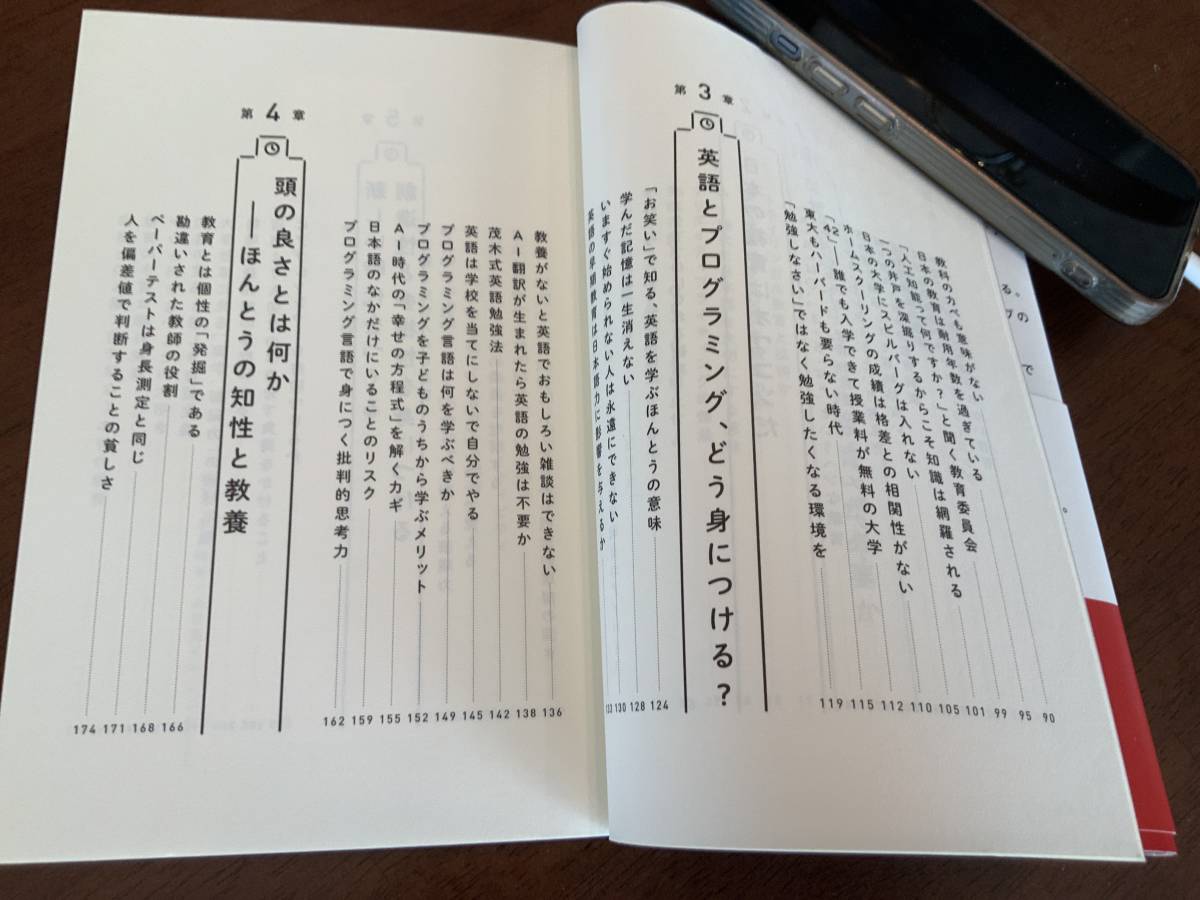 教科のカベも意味がない 90
日本の教育は耐用年数を過ぎている 95
「人工知能って何ですか？」と聞く教育委員会 99
一つの井戸を深堀りするからこそ知識は網羅される 101
日本の大学にスピルバーグは入れない 105
ホームスクーリングの成績は格差との相関性がない 110
「42」――誰でも入学できて授業料が無料の大学 112
東大もハーバードも要らない時代 115
「勉強しなさい」ではなく勉強したくなる環境を 119
第3章
英語とプログラミング、どう身につける？
「お笑い」で知る、英語を学ぶほんとうの意味 124
学んだ記憶は一生消えない 128
いますぐ始められない人は永遠にできない 130
英語の早期教育は日本語力に影響を与えるか
教養がないと英語でおもしろい雑談はできない 136
AI翻訳が生まれたら英語の勉強は不要か 138
茂木式英語勉強法 142
英語は学校を当てにしないで自分でやる 145
プログラミング言語は何を学ぶべきか 149
プログラミングを子どものうちから学ぶメリット 152
AI時代の「幸せの方程式」を解くカギ 155
日本語のなかだけにいることのリスク 159
プログラミング言語で身につく批判的思考力 162
第4章
頭の良さとは何か
――ほんとうの知性と教養
教育とは個性の「発掘」である 166
勘違いされた教師の役割 168
ペーパーテストは身長測定と同じ 171
人を偏差値で判断することの貧しさ 174